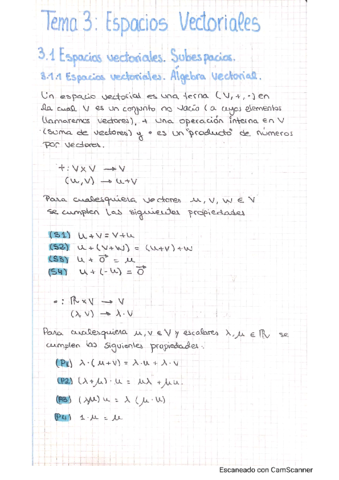 Tema 3: Espacios Vectoriales
3.1 Espacios vectoriales. Subespacios.
3.1.1 Espacios vectoriales. Álgebra Vectorial.
Un espacio vectorial es una terna (V, +, ·) en
la cual V es un conjunto no vacío (a cuyos elementos
llamaremos vectores), + una operación interna en V
(suma de vectores) y · es un "producto" de números
por vectores.
+: V x V → V
(u, v) → u+v
Para cualesquiera vectores u, v, w ∈ V
se cumplen las siguientes propiedades
(S1) u + v = v + u
(S2) u + (v + w) = (u+v) + w
(S3) u + 0⃗ = u
(S4) u + (-u) = 0⃗
· : ℝ x V → V
(λ, v) → λ · v
Para cualesquiera u, v ∈ V y escalares λ, μ ∈ ℝ se
cumplen las siguientes propiedades:
(P1) λ · (u + v) = λ · u + λ · v
(P2) (λ + μ) · u = uλ + μu
(P3) (λμ) u = λ (μ · u)
(P4) 1 · u = u
Escaneado con CamScanner